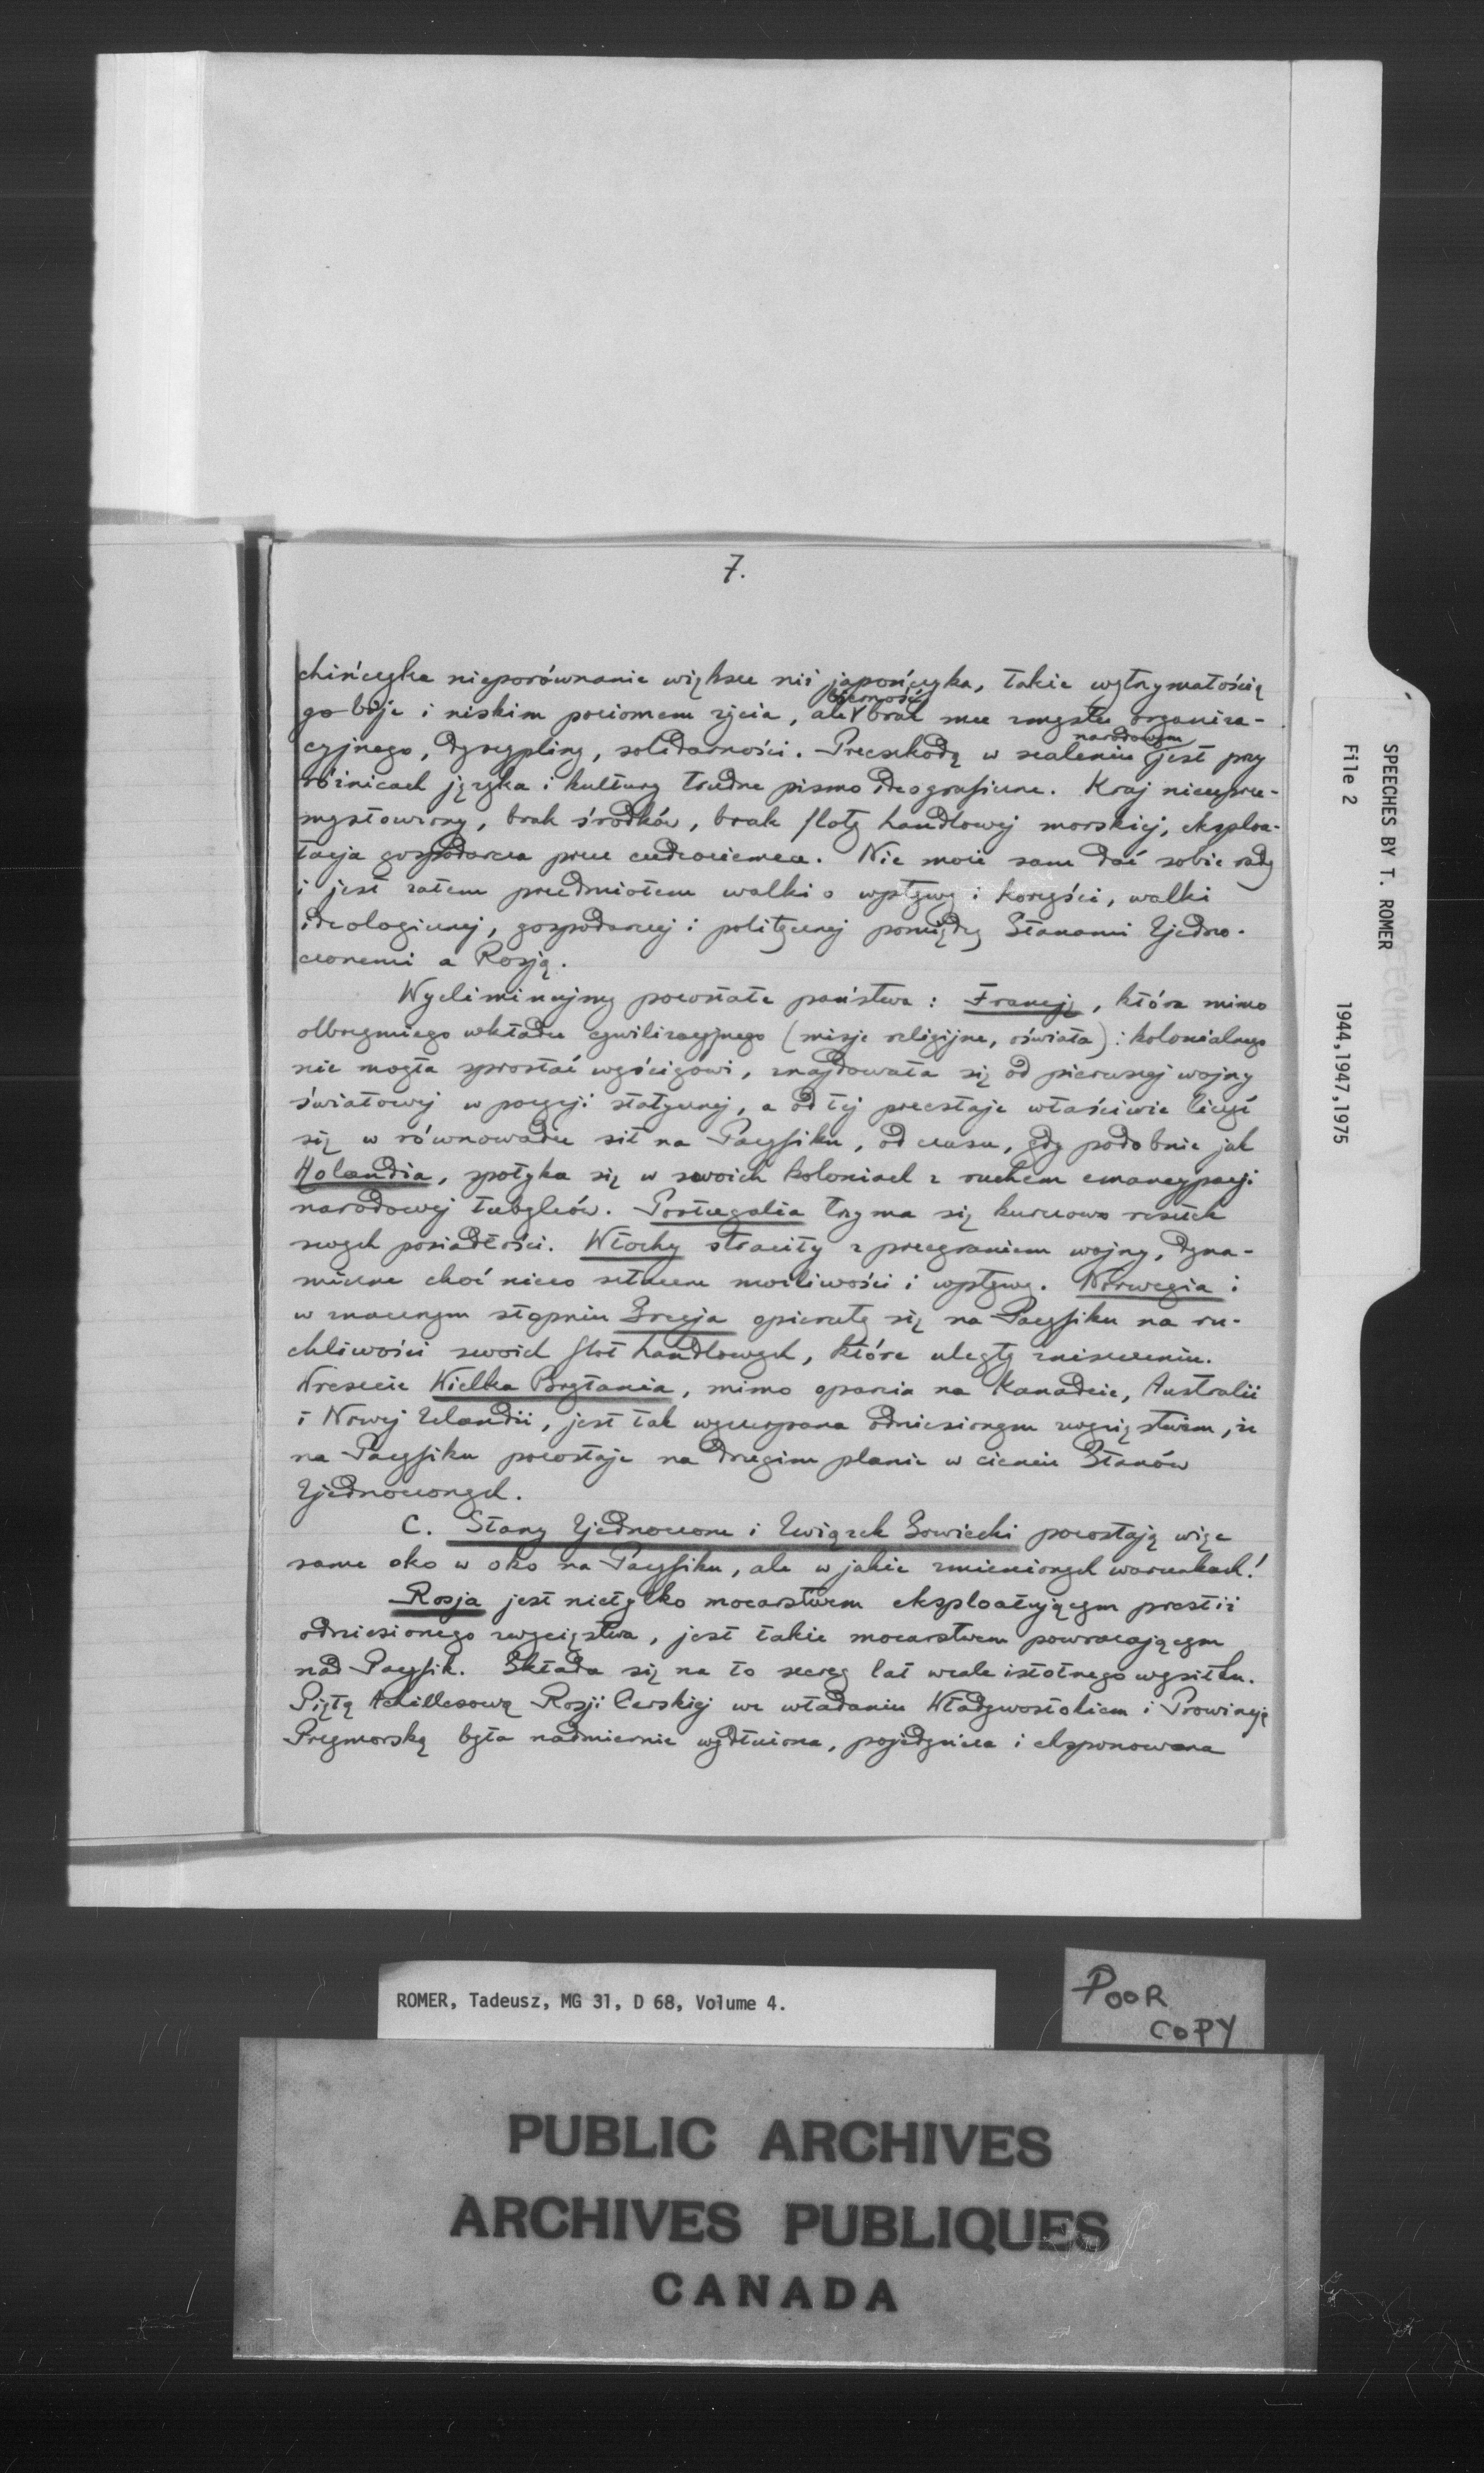 7.
chińczyka nieporównanie większe niż japończyka, także wytrzymałością
go bije i niskim poziomem życia, ale bierność brak mu zmysłu organiza-
cyjnego, dyscypliny, solidarności. Przeszkodą w scaleniu narodowym jest przy
różnicach języka i kultury trudne pismo ideograficzne. Kraj nieuprze-
mysłowiony, brak środków, brak floty handlowej morskiej, eksploa-
tacja gospodarcza przez cudzoziemca. Nie może sam dać sobie rady
i jest zatem przedmiotem walki o wpływy i korzyści, walki
ideologicznej, gospodarczej i politycznej pomiędzy Stanami Zjedno-
czonemi a Rosją.
Wyeliminujmy pozostałe państwa: Francję, która mimo
olbrzymiego wkładu cywilizacyjnego (misje religijne, oświata) i kolonialnego
nie mogła sprostać wyścigowi, znajdowała się od pierwszej wojny
światowej w pozycji statycznej, a od tej przestaje właściwie liczyć
się w równowadze sił na Pacyfiku, od czasu, gdy podobnie jak
Holandia, spotyka się w swoich koloniach z ruchem emancypacji
narodowej tubylców. Portugalia trzyma się kurczowo resztek
swych posiadłości. Włochy straciły z przegraniem wojny, dyna-
miczne choć nieco sztuczne możliwości i wpływy. Norwegia i
w znacznym stopniu Grecja opierały się na Pacyfiku na ru-
chliwości swoich flot handlowych, które uległy zniszczeniu.
Wreszcie Wielka Brytania, mimo oparcia na Kanadzie, Australii
i Nowej Zelandii, jest tak wyczerpana odniesionym zwycięstwem, że
na Pacyfiku pozostaje na drugim planie w cieniu Stanów
Zjednoczonych.
C. Stany Zjednoczone i Związek Sowiecki pozostają więc
same oko w oko na Pacyfiku, ale w jakże zmienionych warunkach!
Rosja jest nietylko mocarstwem eksploatującym prestiż
odniesionego zwycięstwa, jest także mocarstwem powracającym
nad Pacyfik. Składa się na to szereg lat wcale istotnego wysiłku.
Piętą Achillesową Rosji Carskiej we władaniu Władywostokiem i Prowincją
Przymorską była nadmiernie wydłużona, pojedyncza i eksponowana
SPEECHES BY T. ROMER
File 2
1944,1947,1975
ROMER, Tadeusz, MG 31, D 68, Volume 4.
POOR
COPY
PUBLIC ARCHIVES
ARCHIVES PUBLIQUES
CANADA